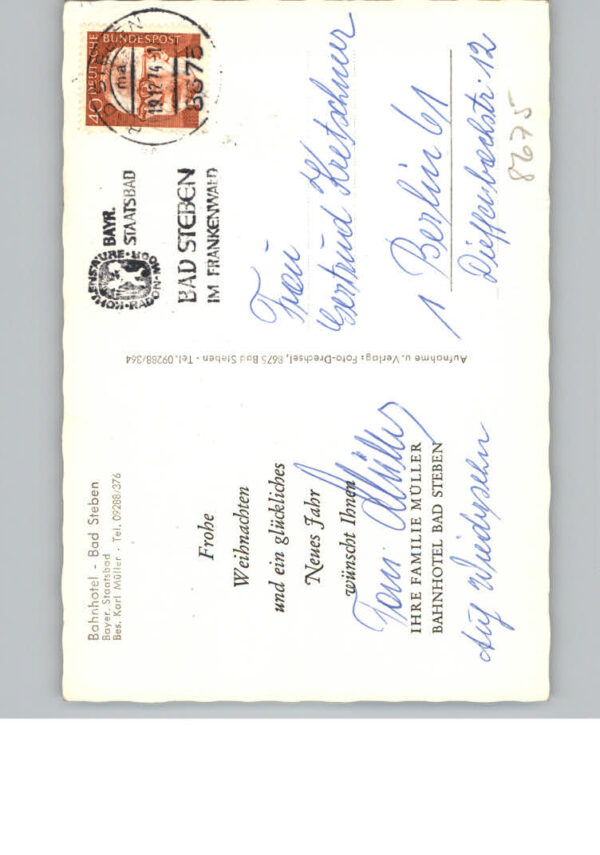 Bahnhotel - Bad Steben
Bayer. Staatsbad
Bes. Karl Müller - Tel. 09288/376
Frohe
Weihnachten
und ein glückliches
Neues Jahr
wünscht Ihnen
Fam. Müller
IHRE FAMILIE MÜLLER
BAHNHOTEL BAD STEBEN
Auf Wiedersehn
Aufnahme u. Verlag: Foto-Drechsel, 8675 Bad Steben - Tel. 09288/364
BAYR.
STAATSBAD
BAD STEBEN
IM FRANKENWALD
STEBEN
ma
19.12.74
8675
40 DEUTSCHE BUNDESPOST
Frau
Gertrud Kretschmer
1 Berlin 61
Dieffenbachstr. 12
8675